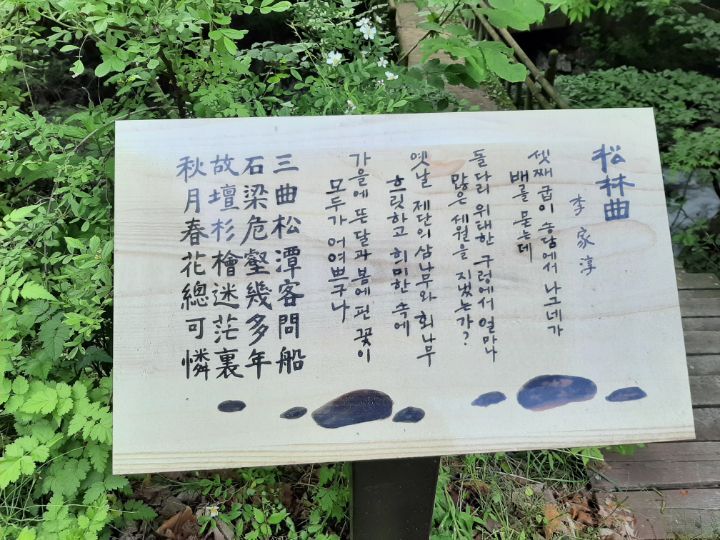 松林曲
李家淳
셋째 굽이 송담에서 나그네가
배를 묻는데
돌다리 위태한 구렁에서 얼마나
많은 세월을 지냈는가?
옛날 제단의 삼나무와 회나무
흐릿하고 희미한 속에
가을에 뜬 달과 봄에 핀 꽃이
모두가 어여쁘구나
三曲松潭客問船
石梁危壑幾多年
故壇杉檜迷茫裏
秋月春花總可憐